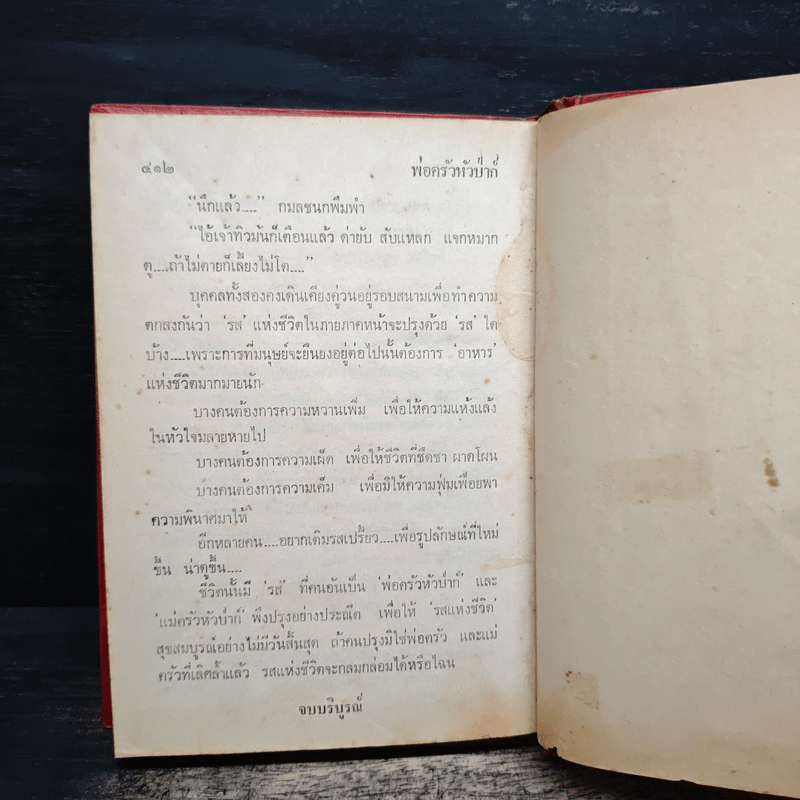 ๔๑๒ พ่อครัวหัวป่าก์
“นึกแล้ว....” กมลชนกพึมพำ
“ไอ้เจ้าทิวมันก็เตือนแล้ว ด่ายับ สับแหลก แจกหมาก
ตู....ถ้าไม่ตายก็เลี้ยงไม่โต....”
บุคคลทั้งสองคงเดินเคียงคู่วนอยู่รอบสนามเพื่อทำความ
ตกลงกันว่า ‘รส’ แห่งชีวิตในภายภาคหน้าจะปรุงด้วย ‘รส’ ใด
บ้าง....เพราะการที่มนุษย์จะยืนยงอยู่ต่อไปนั้นต้องการ ‘อาหาร’
แห่งชีวิตมากมายนัก
บางคนต้องการความหวานเพิ่ม เพื่อให้ความแห้งแล้ง
ในหัวใจมลายหายไป
บางคนต้องการความเผ็ด เพื่อให้ชีวิตที่ชืดชา ผาดโผน
บางคนต้องการความเค็ม เพื่อมิให้ความฟุ่มเฟือยพา
ความพินาศมาให้
อีกหลายคน....อยากเติมรสเปรี้ยว....เพื่อรูปลักษณ์ที่ใหม่
ขึ้น น่าดูขึ้น....
ชีวิตนั้นมี ‘รส’ ที่คนอันเป็น ‘พ่อครัวหัวป่าก์’ และ
‘แม่ครัวหัวป่าก์’ พึงปรุงอย่างประณีต เพื่อให้ ‘รสแห่งชีวิต’
สุขสมบูรณ์อย่างไม่มีวันสิ้นสุด ถ้าคนปรุงมิใช่พ่อครัว และแม่
ครัวที่เลิศล้ำแล้ว รสแห่งชีวิตจะกลมกล่อมได้หรือไฉน
จบบริบูรณ์